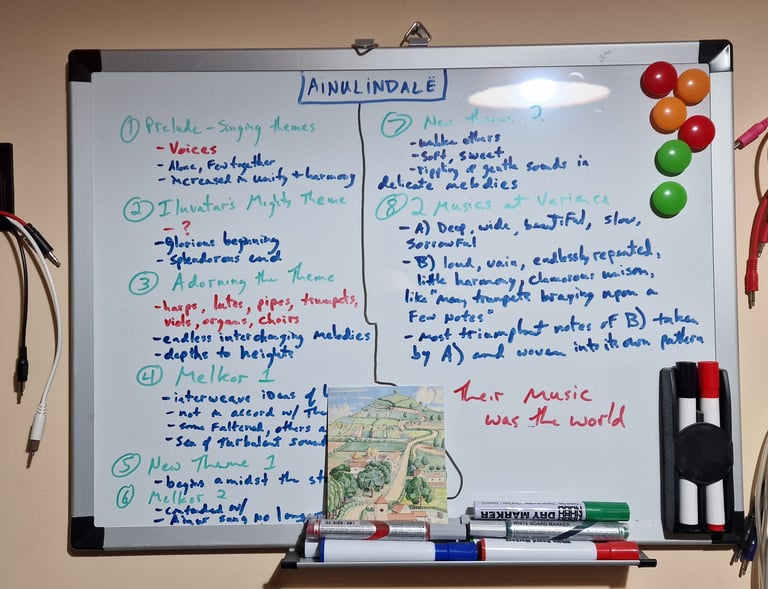 AINULINDALË
① Prelude - Singing themes
- Voices
- Alone, Few together
- increased in unity + harmony
② Iluvatar's Mighty Theme
- ?
- glorious beginning
- splendorous end
③ Adorning the Theme
- harps, lutes, pipes, trumpets,
viols, organs, choirs
- endless interchanging melodies
- depths to heights
④ Melkor 1
- interweave ideas of
- not in accord w/ The
- some Faltered, others a
- Sea of turbulent sound
⑤ New Theme 1
- begins amidst the st
⑥ Melkor 2
- contended w/
- Ainur sang no longer
⑦ New 2
- unlike others
- soft, sweet
- rippling of gentle sounds in
delicate melodies
⑧ 2 Musics at Variance
- A) Deep, wide, beautiful, slow,
sorrowful
- B) loud, vain, endlessly repeated,
little harmony, clamorous unison,
like "many trumpets braying upon a
Few notes"
- most triumphant notes of B) taken
by A) and woven into its own pattern
Their Music
was the world
DRY MARKER
WHITE BOARD MARKER